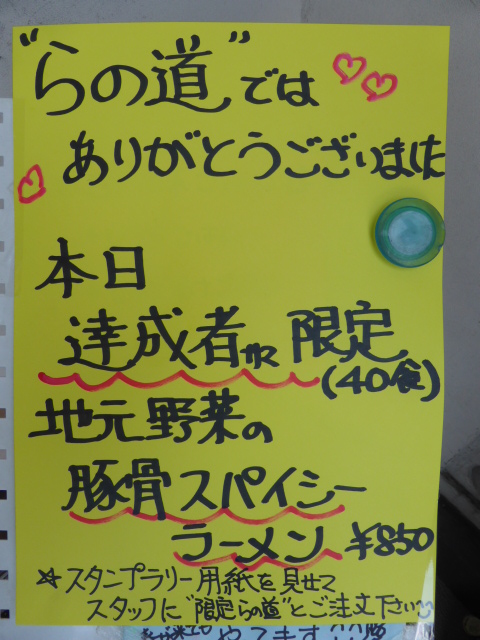 "らの道"では
ありがとうございました
本日
達成者かく限定
(40食)
地元野菜の
豚骨スパイシー
ラーメン ¥850
☆スタンプラリー用紙を見せて
スタッフに"限定らの道"とご注文下さい